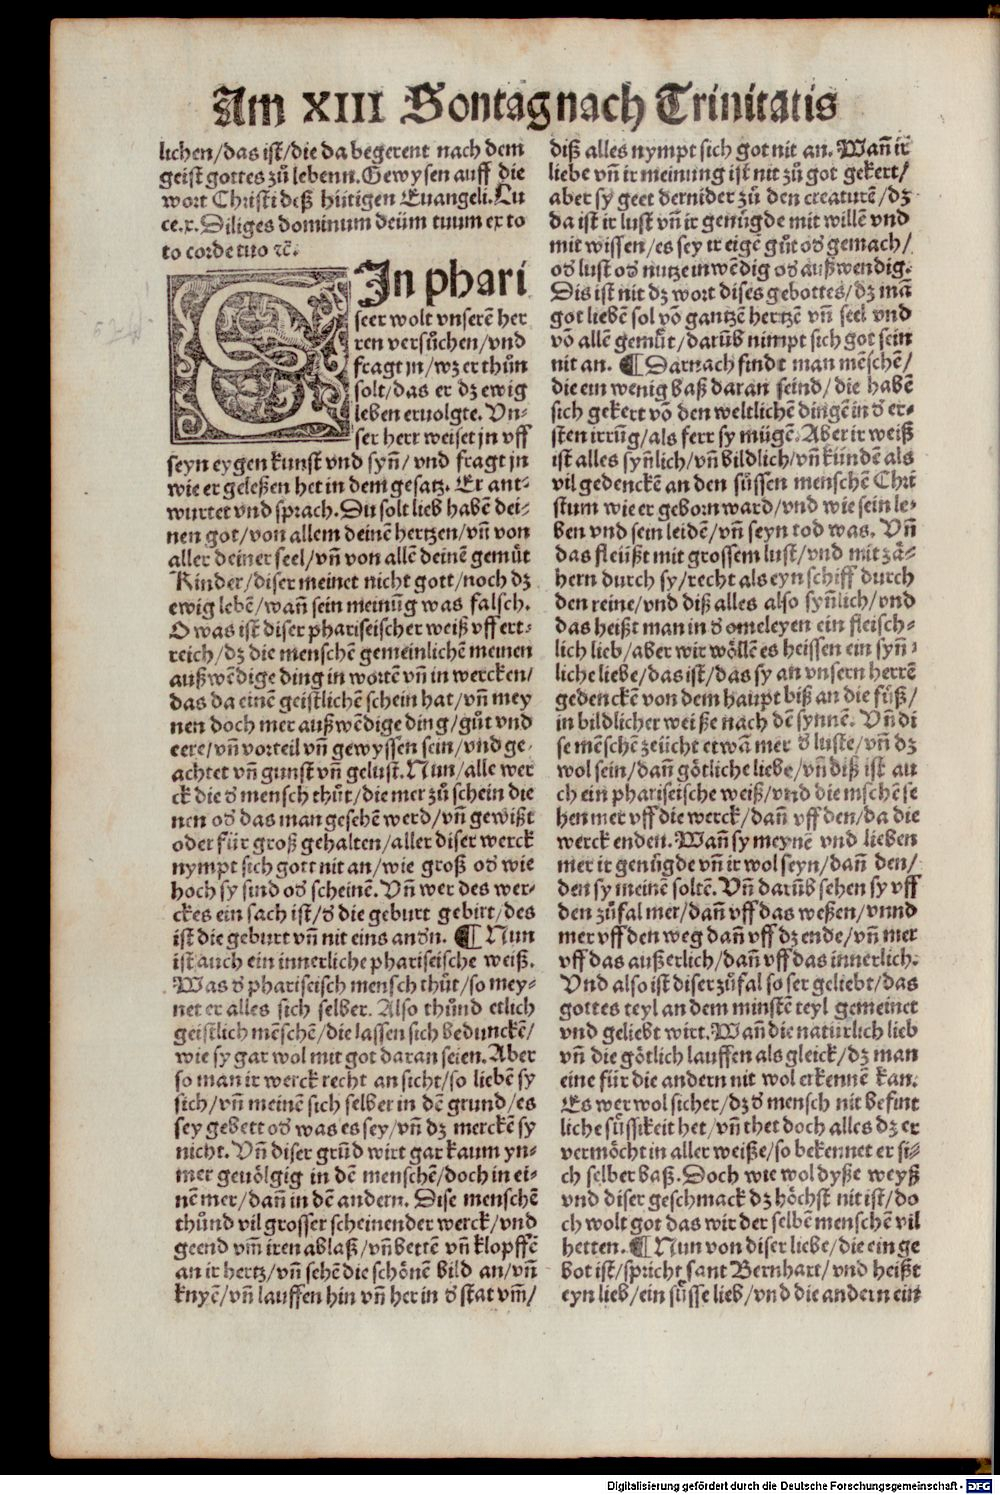 Am XIII Sontag nach Trinitatis
lichen/das ist/die da begerent nach dem
geist gottes zů lebenn. Gewysen auff die
wort Christi deß hütigen Euangeli. Lu
ce. x. Diliges dominum deüm tuum ex to
to corde tuo ⁊c̄.
EIn phari
seer wolt vnserē her
ren versůchen/vnd
fragt jn/wz er thůn
solt/das er dz ewig
leben eruolgte. Vn⸗
ser herr weiset jn vff
seyn eygen kunst vnd syñ/ vnd fragt jn
wie er geleßen het in dem gesatz. Er ant⸗
wurtet vnd sprach. Du solt lieb habē dei⸗
nen got/von allem deinē hertzen/vñ von
aller deiner seel/vñ von allē deinē gemůt
Kinder/diser meinet nicht gott/noch dz
ewig lebē/wañ sein meinūg was falsch.
O was ist diser phariseischer weiß vff ert⸗
reich/dz die menschē gemeinlichē meinen
außwēdige ding in wortē vñ in wercken/
das da einē geistlichen schein hat/vñ mey
nen doch mer außwēdige ding/gůt vnd
eere/vñ vorteil vñ gewyssen sein/vnd ge⸗
achtet vñ gunst vñ gelust. Nun/alle wer
ck die d̕ mensch thůt/die mer zů schein die
nen od̕ das man gesehē werd/vñ gewißt
oder für groß gehalten/aller diser werck
nympt sich gott nit an/wie groß od̕ wie
hoch sy sind od̕ scheinē. Vñ wer des wer⸗
ckes ein sach ist/d̕ die geburt gebirt/des
ist die geburt vñ nit eins and̕n. ¶ Nun
ist auch ein innerliche phariseische weiß.
Was d̕ phariseisch mensch thůt/so mey⸗
net er alles sich selber. Also thůnd etlich
geistlich mēschē/die lassen sich beduncкē/
wie sy gar wol mit got daran seien. Aber
so man ir werck recht an sicht/so liebē sy
sich/vñ meinē sich selber in dē grund/es
sey gebett od̕ was es sey/vñ dz merckē sy
nicht. Vñ diser grūd wirt gar kaum yn⸗
mer geuölgig in dē menschē/doch in ei⸗
nē mer/dañ in dē andern. Dise menschē
thůnd vil grosser scheinender werck/vnd
geend vm̄ iren ablaß/vñ bettē vñ klopffē
an ir hertz/vñ sehē die schönē bild an/vñ
knyē/vñ lauffen hin vñ her in d̕ stat vm̄/
diß alles nympt sich got nit an. Wañ ir
liebe vñ ir meinung ist nit zů got gekert/
aber sy geet dernider zů den creaturē/dz
da ist ir lust vñ ir genůgde mit willē vnd
mit wissen/es sey ir eigē gůt od̕ gemach/
od̕ lust od̕ nutze inwēdig od̕ außwendig.
Dis ist nit dz wort dises gebottes/dz mā
got liebē sol vō gantzē hertzē vñ seel vnd
vō allē gemůt/darūb nimpt sich got sein
nit an. ¶ Darnach findt man mēschē/
die ein wenig baß daran seind/ die habē
sich gekert vō den weltlichē dingē in d̕ er⸗
sten irrūg/als ferr sy mügē. Aber ir weiß
ist alles syñlich/vñ bildlich/vñ künden als
vil gedenckē an den süssen menschē Chri
stum wie er geborn ward/vnd wie sein le⸗
ben vnd sein leidē/vñ seyn tod was. Vñ
das fleüßt mit grossem lust/vnd mit zä⸗
hern durch sy/recht als eyn schiff durch
den reine/vnd diß alles also syñlich/vnd
das heißt man in d̕ omeleyen ein fleisch⸗
lich lieb/aber wir wöllē es heissen ein syñ⸗
liche liebe/das ist/das sy an vnsern herrē
gedenckē von dem haupt biß an die füß/
in bildlicher weiße nach dē synnē. Vñ di
se mēschē zeücht etwā mer d̕ luste/vñ dz
wol sein/dañ götliche liebe/vñ diß ist au
ch ein phariseische weiß/vnd die mschē se
hen mer vff die werck/dañ vff den/da die
werck enden. Wañ sy meynē vnd lieben
mer ir genügde vñ ir wol seyn/dañ den/
den sy meinē soltē. Vñ darūb sehen sy vff
den zůfal mer/dañ vff das weßen/vnnd
mer vff den weg dañ vff dz ende/vñ mer
vff das außerlich/dañ vff das innerlich.
Vnd also ist diser zůfal so ser geliebt/das
gottes teyl an dem minstē teyl gemeinet
vnd geliebt wirt. Wañ die natürlich lieb
vñ die götlich lauffen als gleick/dz man
eine für die andern nit wol erkennē kan.
Es wer wol sicher/dz d̕ mensch nit befint
liche süssikeit het/vñ thet doch alles dz er
vermöcht in aller weiße/so bekennet er si⸗
ch selber baß. Doch wie wol dyße weyß
vnd diser geschmack dz höchst nit ist/do
ch wolt got das wir der selbē menschē vil
hetten. ¶ Nun von diser liebe/die ein ge
bot ist/spricht sant Bernhart/vnd heißt
eyn lieb/ein süsse lieb/vnd die andern ein
Digitalisierung gefördert durch die Deutsche Forschungsgemeinschaft - DFG